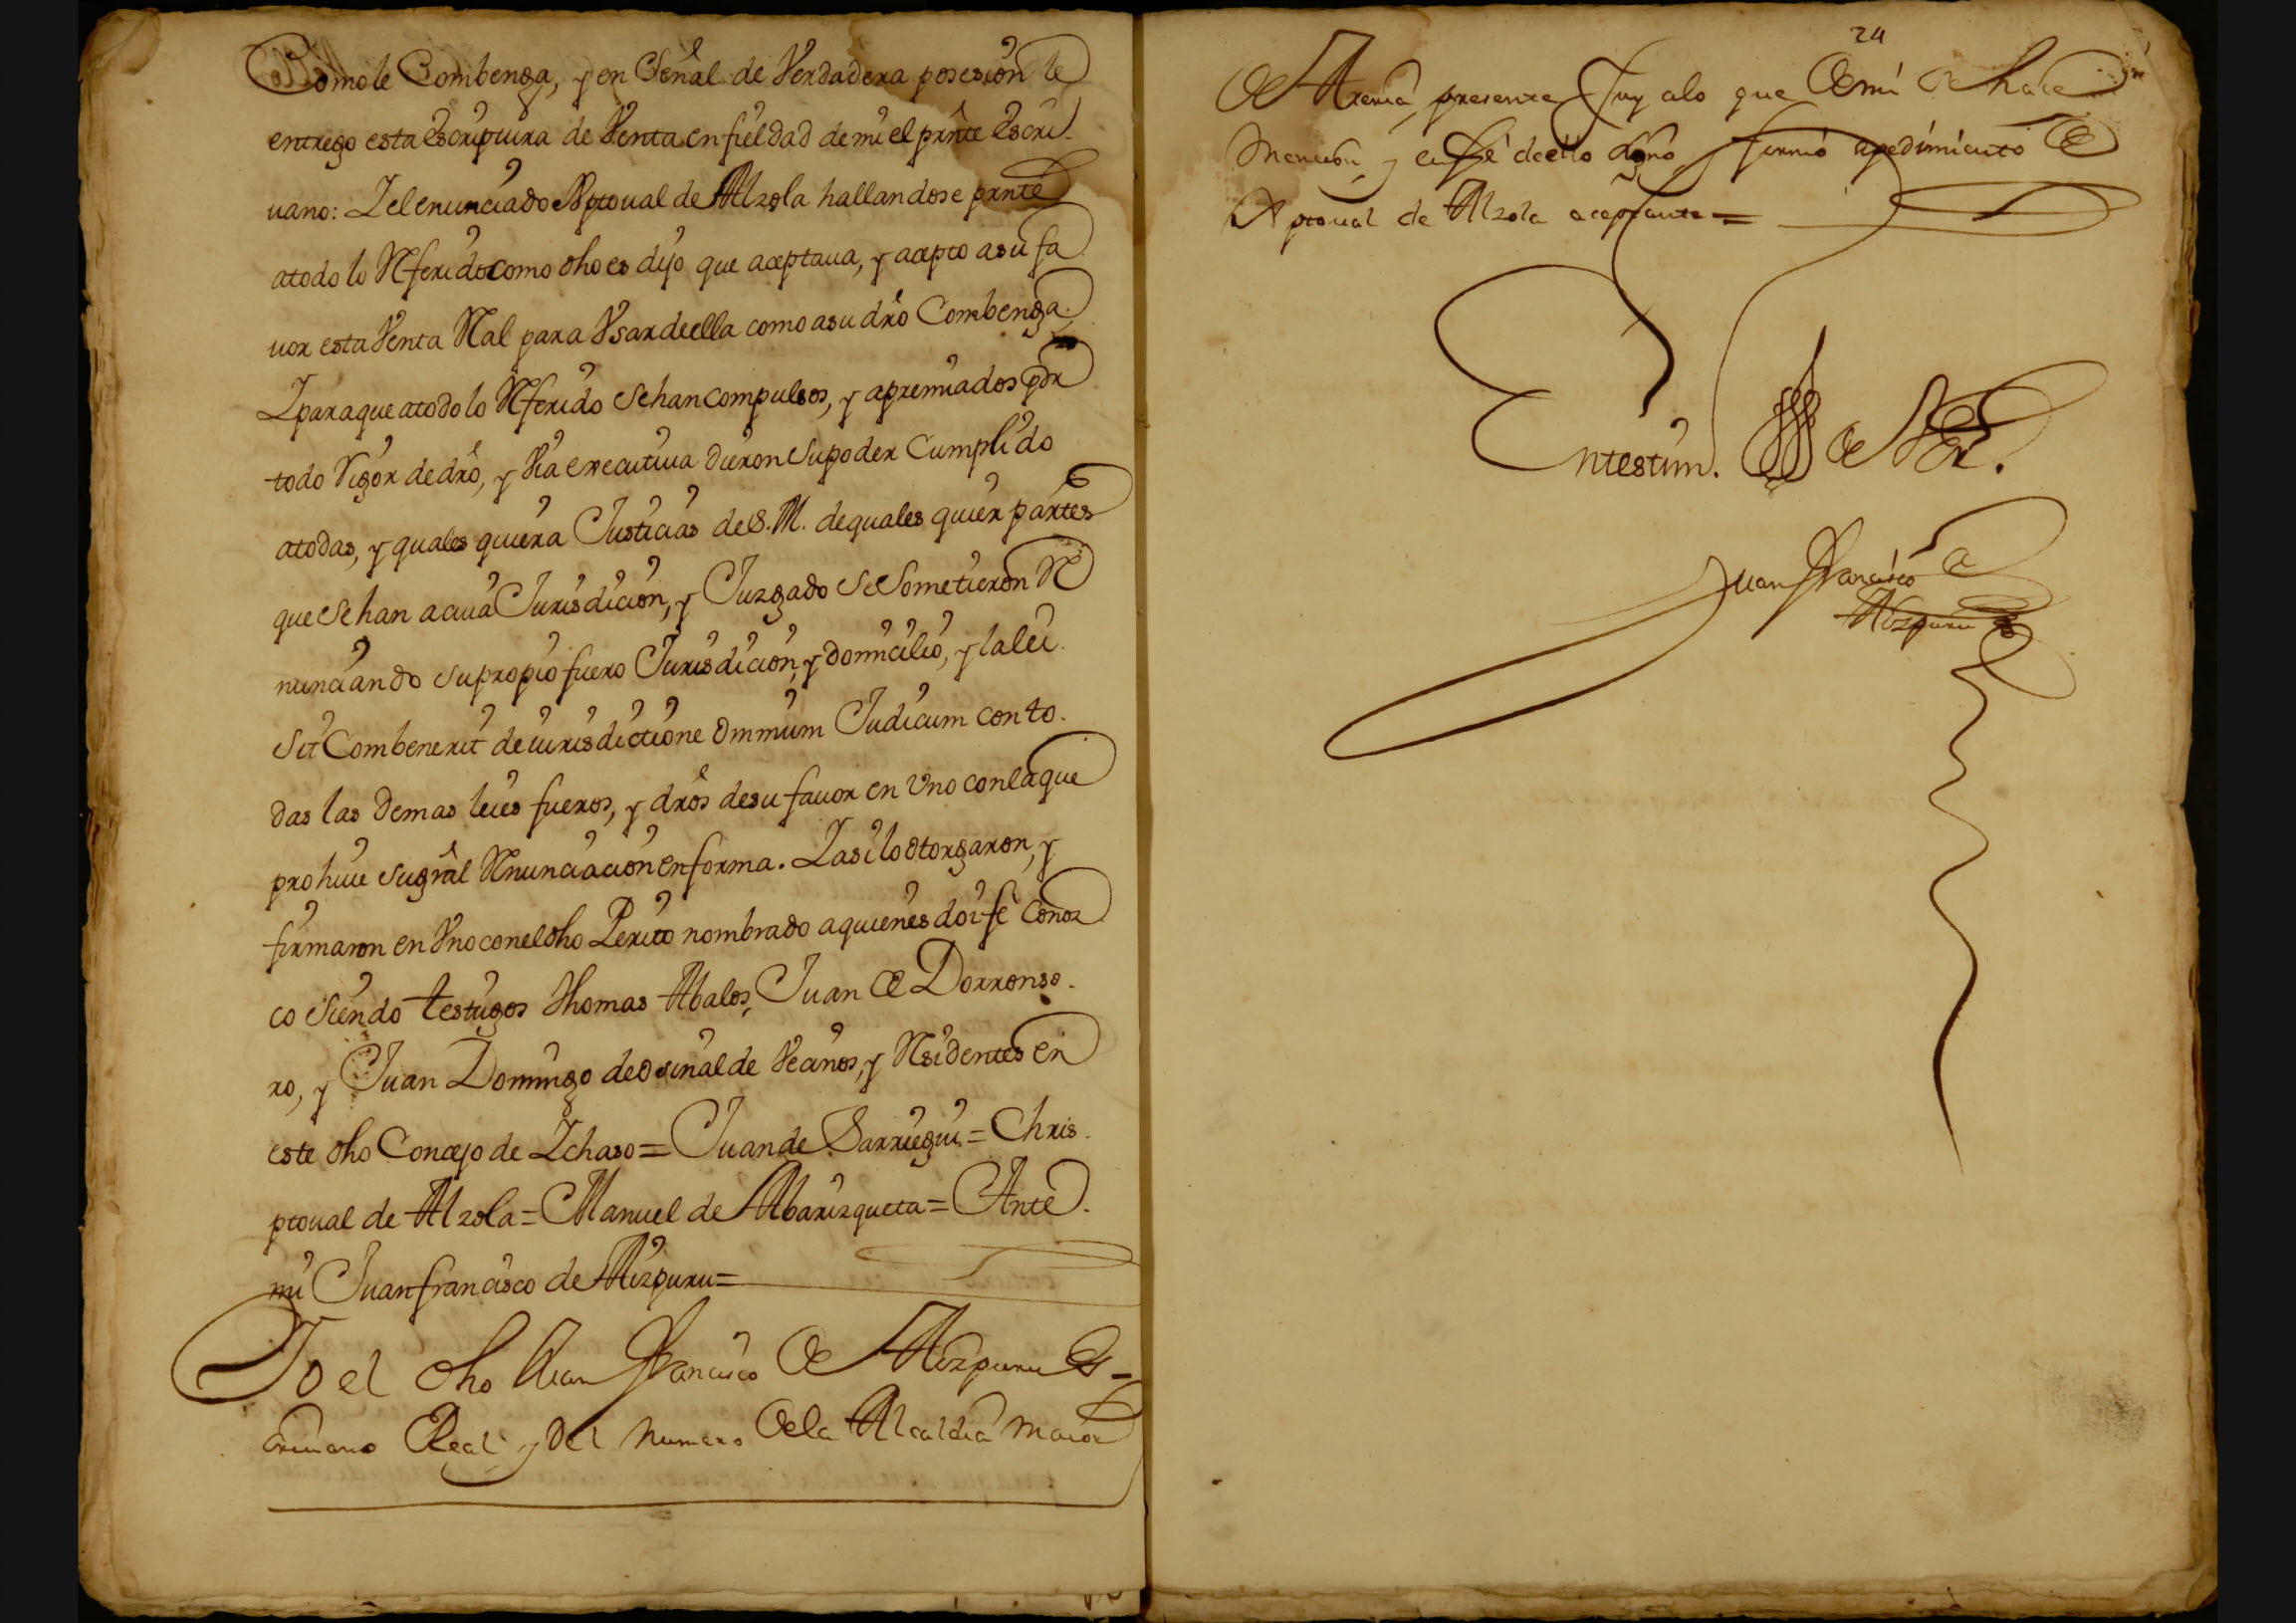 Como le Combenga, y en Señal de Verdadera posesion le
entrego esta escriptura de Venta en fieldad de mi el prnte escri-
uano: Y el enunciado Xptoual de Alzola hallandose prnte
atodo lo Referido como dho es dijo que aceptaua, y acepto asu fa
uor esta Venta Real para Vsar de ella como asu dro Combenga.
Y para que atodo lo Referido Sehan compulsos, y apremiados por
todo Vigor de dro, y Via executiua dieron Supoder Cumplido
atodas, y quales quiera Justicias de S. M. de quales quier partes
que Sehan acuia Jurisdicion, y Juzgado Se Sometieron Re
nunciando su propio fuero Jurisdicion, y domicilio, y la lei.
Sit Combenerit de iurisdictione Omnium Judicum con to.
das las Demas leies fueros, y dros de su fauor en Vno con la que
prohiue su gral Renunciacion en forma. Y asi lo otorgaron, y
firmaron en Vno con el dho Perito nombrado a quienes doi fe Conoz
co Siendo testigos Thomas Abalos, Juan de Dorronso.
ro, y Juan Domingo de Osinalde Vecinos, y Residentes en
este dho Concejo de Ychaso = Juan de Sarriegui = Chris.
ptoual de Alzola = Manuel de Albarizqueta = Ante.
mi Juan francisco de Aizpuru =
Yo el dho Juan Francisco de Aizpuru Es-
criuano Real, y del Numero de la Alcaldia maior
24
de Areria, presente fuy alo que de mi se hace
mencion, y en fe de ello signo y firmo apedimiento de
Xptoual de Alzola aceptante =
En testim. de Ver.
Juan Francisco de
Aizpuru